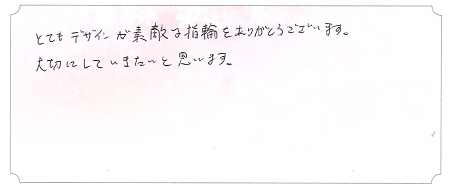 とてもデザインが素敵な指輪をありがとうございます。
大切にしていきたいと思います。